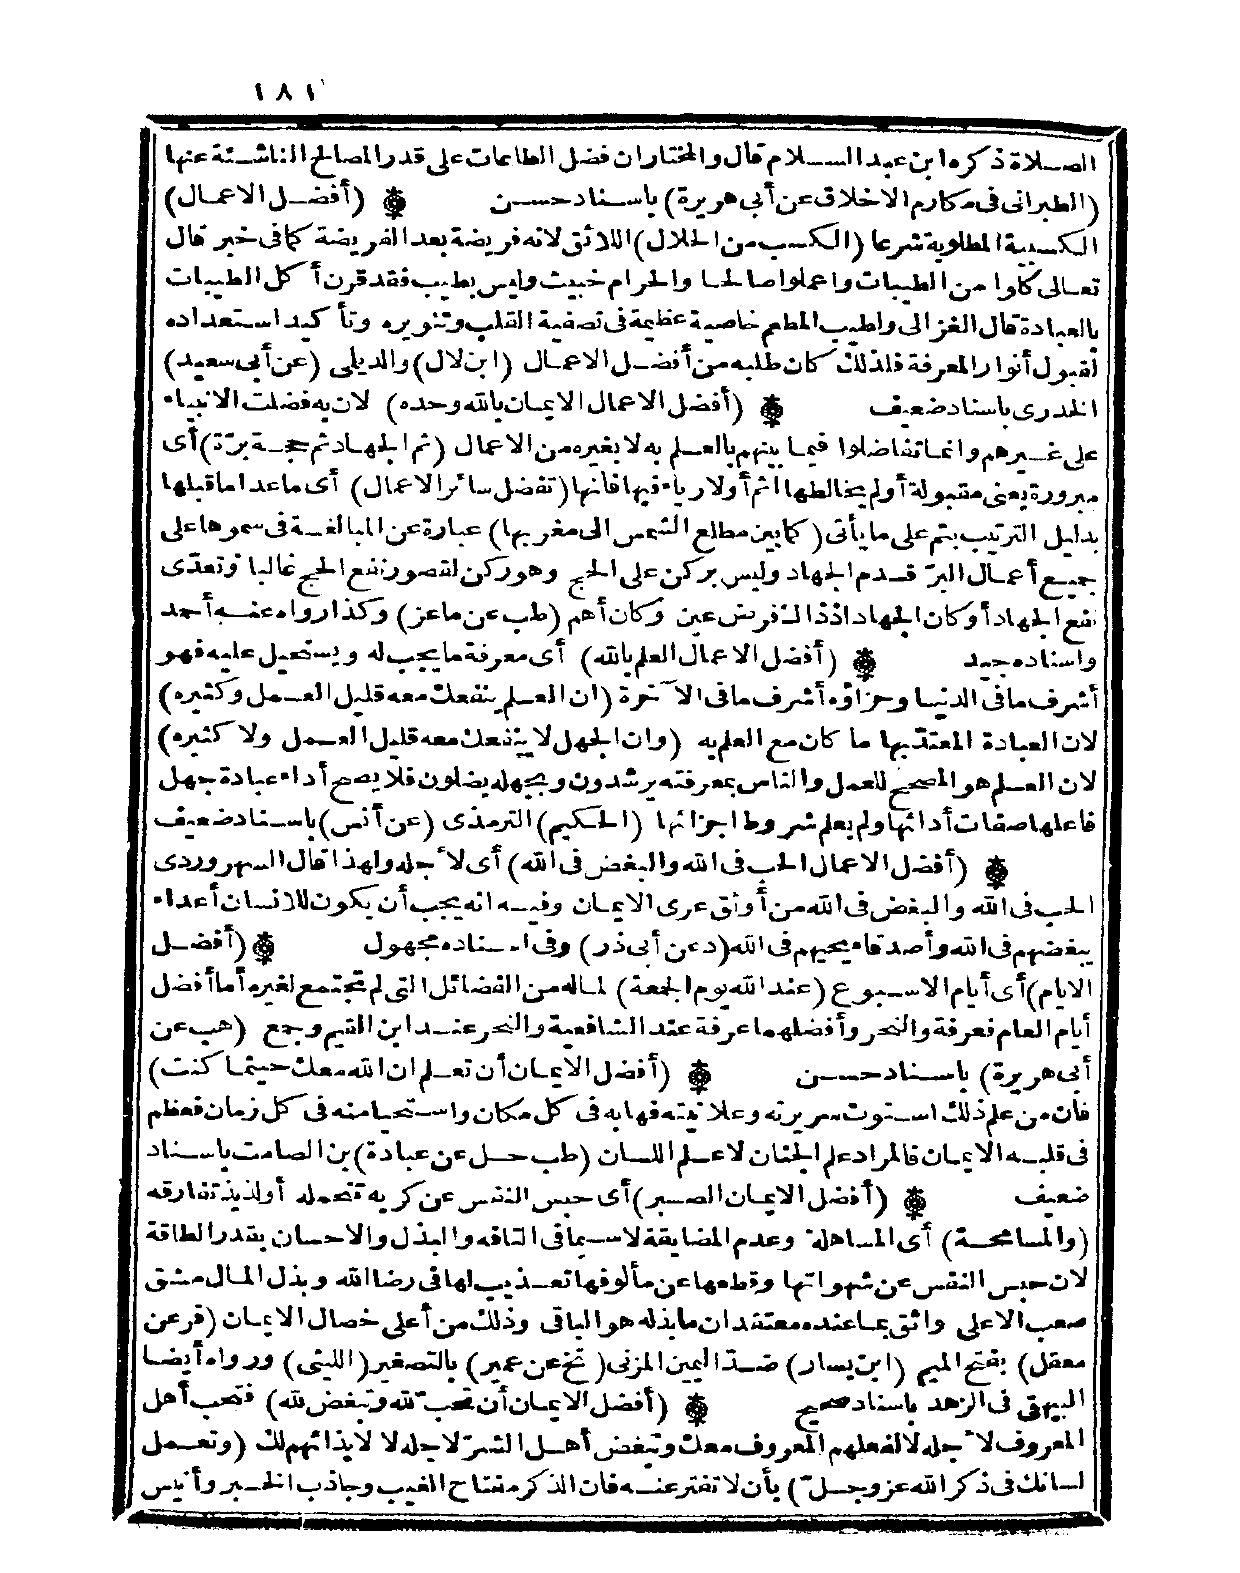 ١٨١
الصلاة ذكره ابن عبد السلام قال والمختار ان فضل الطاعات على قدر المصالح الناشئة عنها
(الطبراني في مكارم الاخلاق عن أبي هريرة) باسناد حسن ۞ (أفضل الاعمال)
الكسبية المطلوبة شرعا (الكسب من الحلال) اللائق لانه فريضة بعد الفريضة كما في خبر قال
تعالى كلوا من الطيبات واعملوا صالحا والحرام خبيث وليس بطيب فقد قرن أكل الطيبات
بالعبادة قال الغزالى ولطيب المطعم خاصية عظيمة في تصفية القلب وتنويره وتأكيد استعداده
لقبول أنوار المعرفة فلذلك كان طلبه من أفضل الاعمال (ابن لال) والديلى (عن أبي سعيد)
الخدرى باسناد ضعيف ۞ (أفضل الاعمال الايمان بالله وحده) لان به فضلت الانبياء
على غيرهم وانما تفاضلوا فيما بينهم بالعلم به لا بغيره من الاعمال (ثم الجهاد ثم حجة برّة) أى
مبرورة يعنى مقبولة أو لم يخالطها اثم أو لا رياء فيها فانها (تفضل سائر الاعمال) أى ما عدا ما قبلها
بدليل الترتيب بثم على ما يأتى (كما بين مطلع الشمس الى مغربها) عبارة عن المبالغة في سموها على
جميع أعمال البرّ قدم الجهاد وليس بركن على الحج وهو ركن لقصور نفع الحج غالبا وتعدّى
نفع الجهاد أو كان الجهاد اذ ذاك فرض عين وكان أهم (طب عن ماعز) وكذا رواه عنه أحمد
واسناده جيد ۞ (أفضل الاعمال العلم بالله) أى معرفة ما يجب له ويستحيل عليه فهو
أشرف ما في الدنيا وجزاؤه أشرف ما في الآخرة (ان العلم ينفعك معه قليل العمل وكثيره)
لان العبادة المعتدّ بها ما كان مع العلم به (وان الجهل لا ينفعك معه قليل العمل ولا كثيره)
لان العلم هو المصحح للعمل والناس بمعرفته يرشدون وبجهله يضلون فلا يصح أداء عبادة جهل
فاعلها صفات أدائها ولم يعلم شروط اجزائها (الحكيم) الترمذى (عن أنس) باسناد ضعيف
۞ (أفضل الاعمال الحب في الله والبغض في الله) أى لأجله ولهذا قال السهروردى
الحب في الله والبغض في الله من أوثق عرى الايمان وفيه انه يجب أن يكون للانسان أعداء
يبغضهم في الله وأصدقاء يحبهم في الله (د عن أبي ذر) وفي اسناده مجهول ۞ (أفضل
الايام) أى أيام الاسبوع (عند الله يوم الجمعة) لما له من الفضائل التى لم تجتمع لغيره أما أفضل
أيام العام فعرفة والنحر وأفضلهما عرفة عند الشافعية والنحر عند ابن القيم وجمع (هب عن
أبي هريرة) باسناد حسن ۞ (أفضل الايمان أن تعلم ان الله معك حيثما كنت)
فان من علم ذلك استوت سريرته وعلانيته فهابه في كل مكان واستحيا منه في كل زمان فعظم
في قلبه الايمان فالمراد علم الجنان لا علم اللسان (طب حل عن عبادة) بن الصامت باسناد
ضعيف ۞ (أفضل الايمان الصبر) أى حبس النفس عن كريه تتحمله أو لذيذ تفارقه
(والمسامحة) أى المساهلة وعدم المضايقة لا سيما في التافه والبذل والاحسان بقدر الطاقة
لان حبس النفس عن شهواتها وقطعها عن مألوفها تعذيب لها في رضا الله وبذل المال مشق
صعب الا على واثق بما عنده معتقد ان ما بذله هو الباقى وذلك من أعلى خصال الايمان (فر عن
معقل) بفتح الميم (ابن يسار) ضدّ اليمين المزنى (تخ عن عمير) بالتصغير (الليثى) ورواه أيضا
البيهقى في الزهد باسناد صحيح ۞ (أفضل الايمان أن تحبّ لله وتبغض لله) فتحب أهل
المعروف لأجله لا لفعلهم المعروف معك وتبغض أهل الشرّ لاجله لا لايذائهم لك (وتعمل
لسانك في ذكر الله عز وجلّ) بأن لا تفتر عنه فان الذكر مفتاح الغيب وجاذب الخير وأنيس